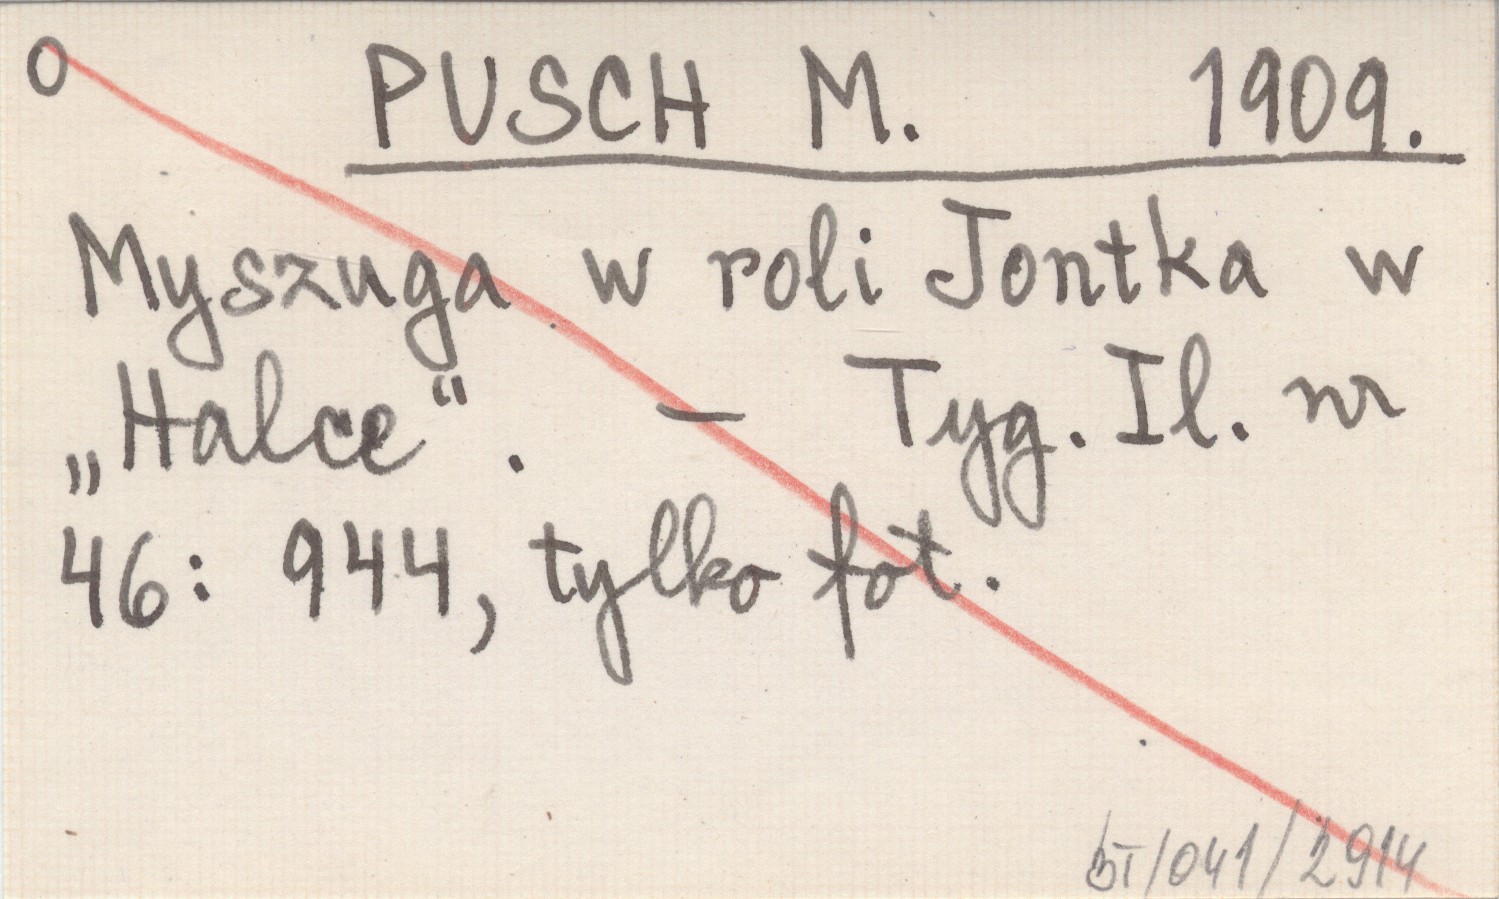 O PUSCH M. 1909.
Myszuga w roli Jontka w
„Halce“. — Tyg. Il. nr
46: 944, tylko fot.
BT/041/2914